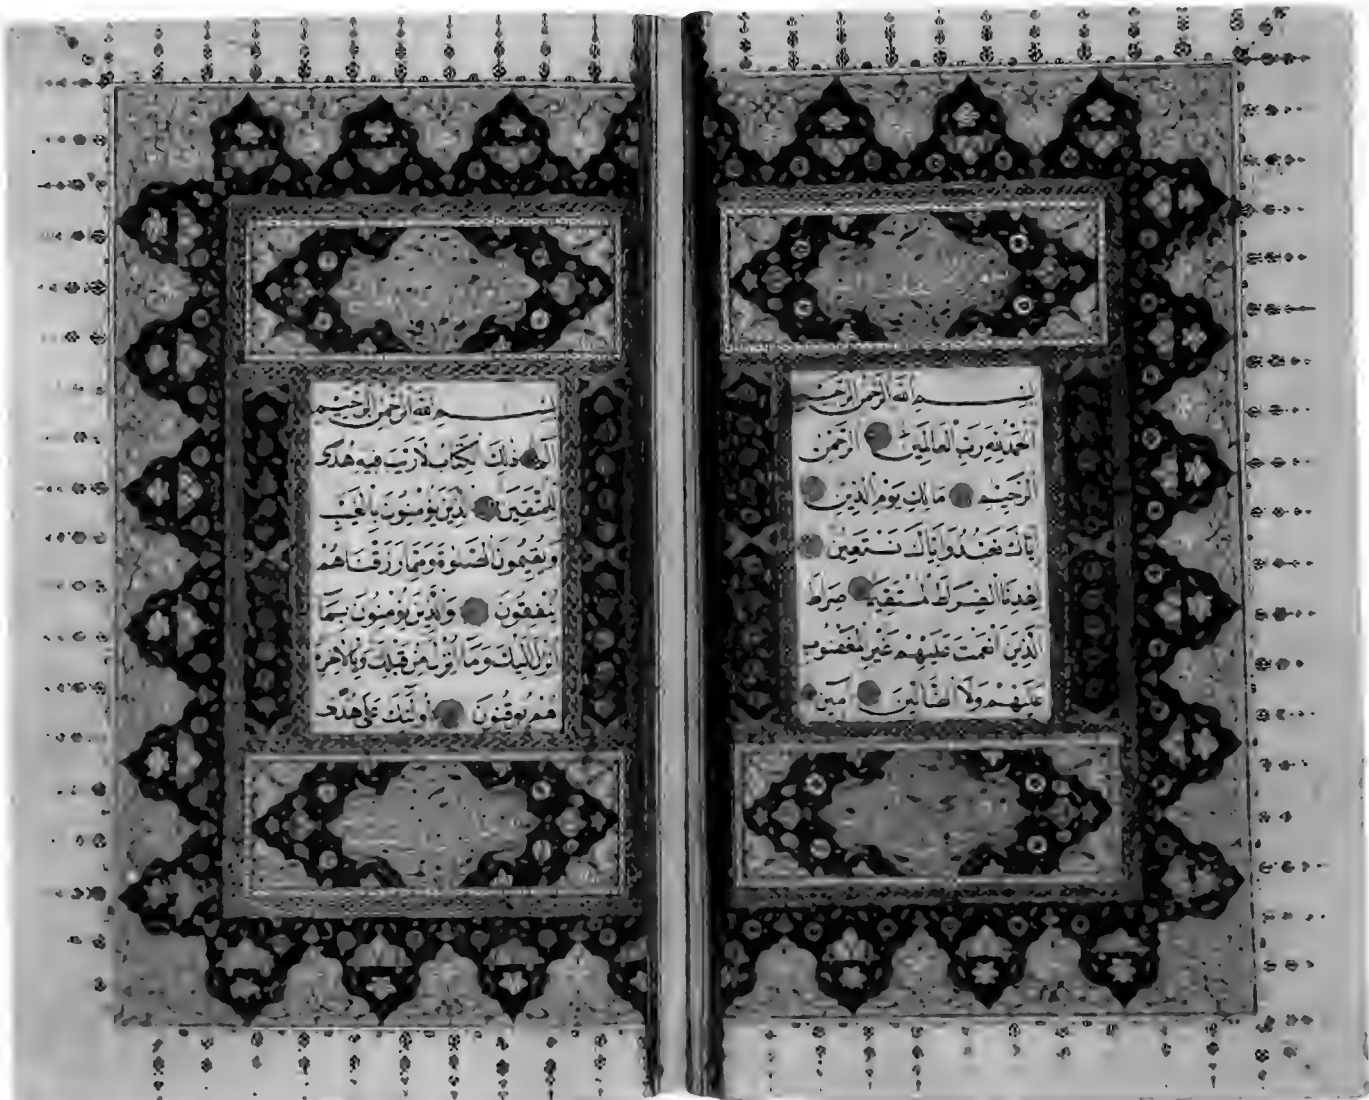 بسم الله الرحمن الرحيم
الحمد لله رب العالمين الرحمن
الرحيم مالك يوم الدين
اياك نعبد واياك نستعين
اهدنا الصراط المستقيم صراط
الذين انعمت عليهم غير المغضوب
عليهم ولا الضالين آمين
بسم الله الرحمن الرحيم
الم ذلك الكتاب لا ريب فيه هدى
للمتقين الذين يؤمنون بالغيب
ويقيمون الصلوة ومما رزقناهم
ينفقون والذين يؤمنون بما
انزل اليك وما انزل من قبلك وبالآخرة
هم يوقنون اولئك على هدى